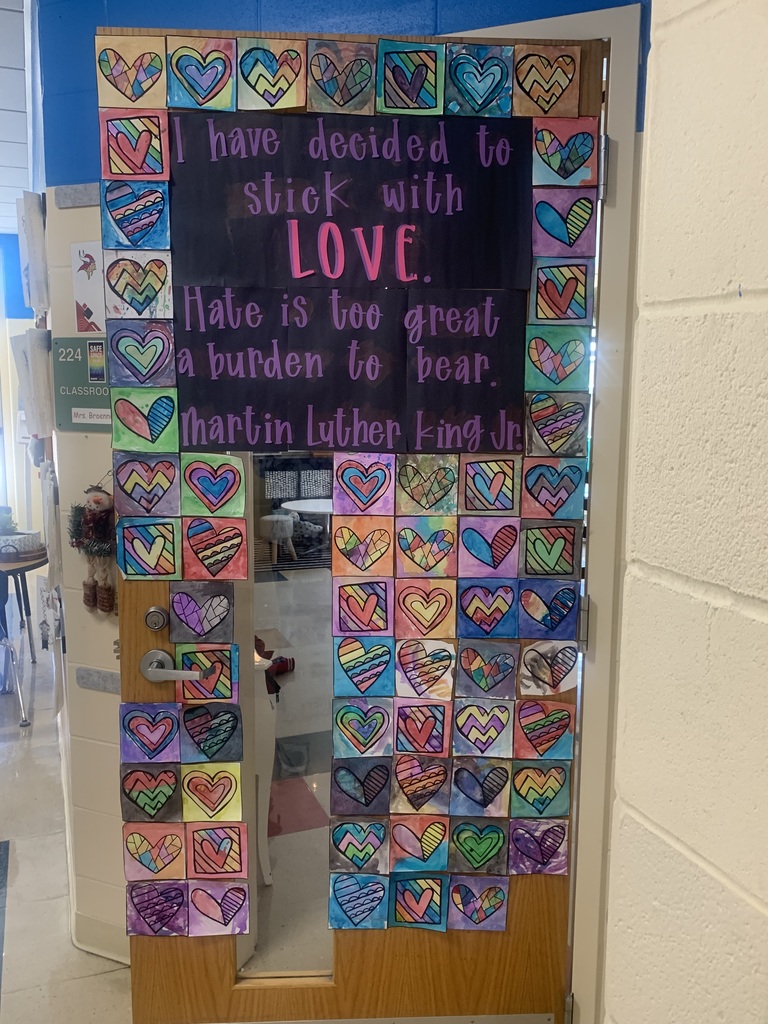 I have decided to
stick with
LOVE.
Hate is too great
a burden to bear.
Martin Luther King Jr.
224
SAFE
CLASSROO
Mrs Broenn